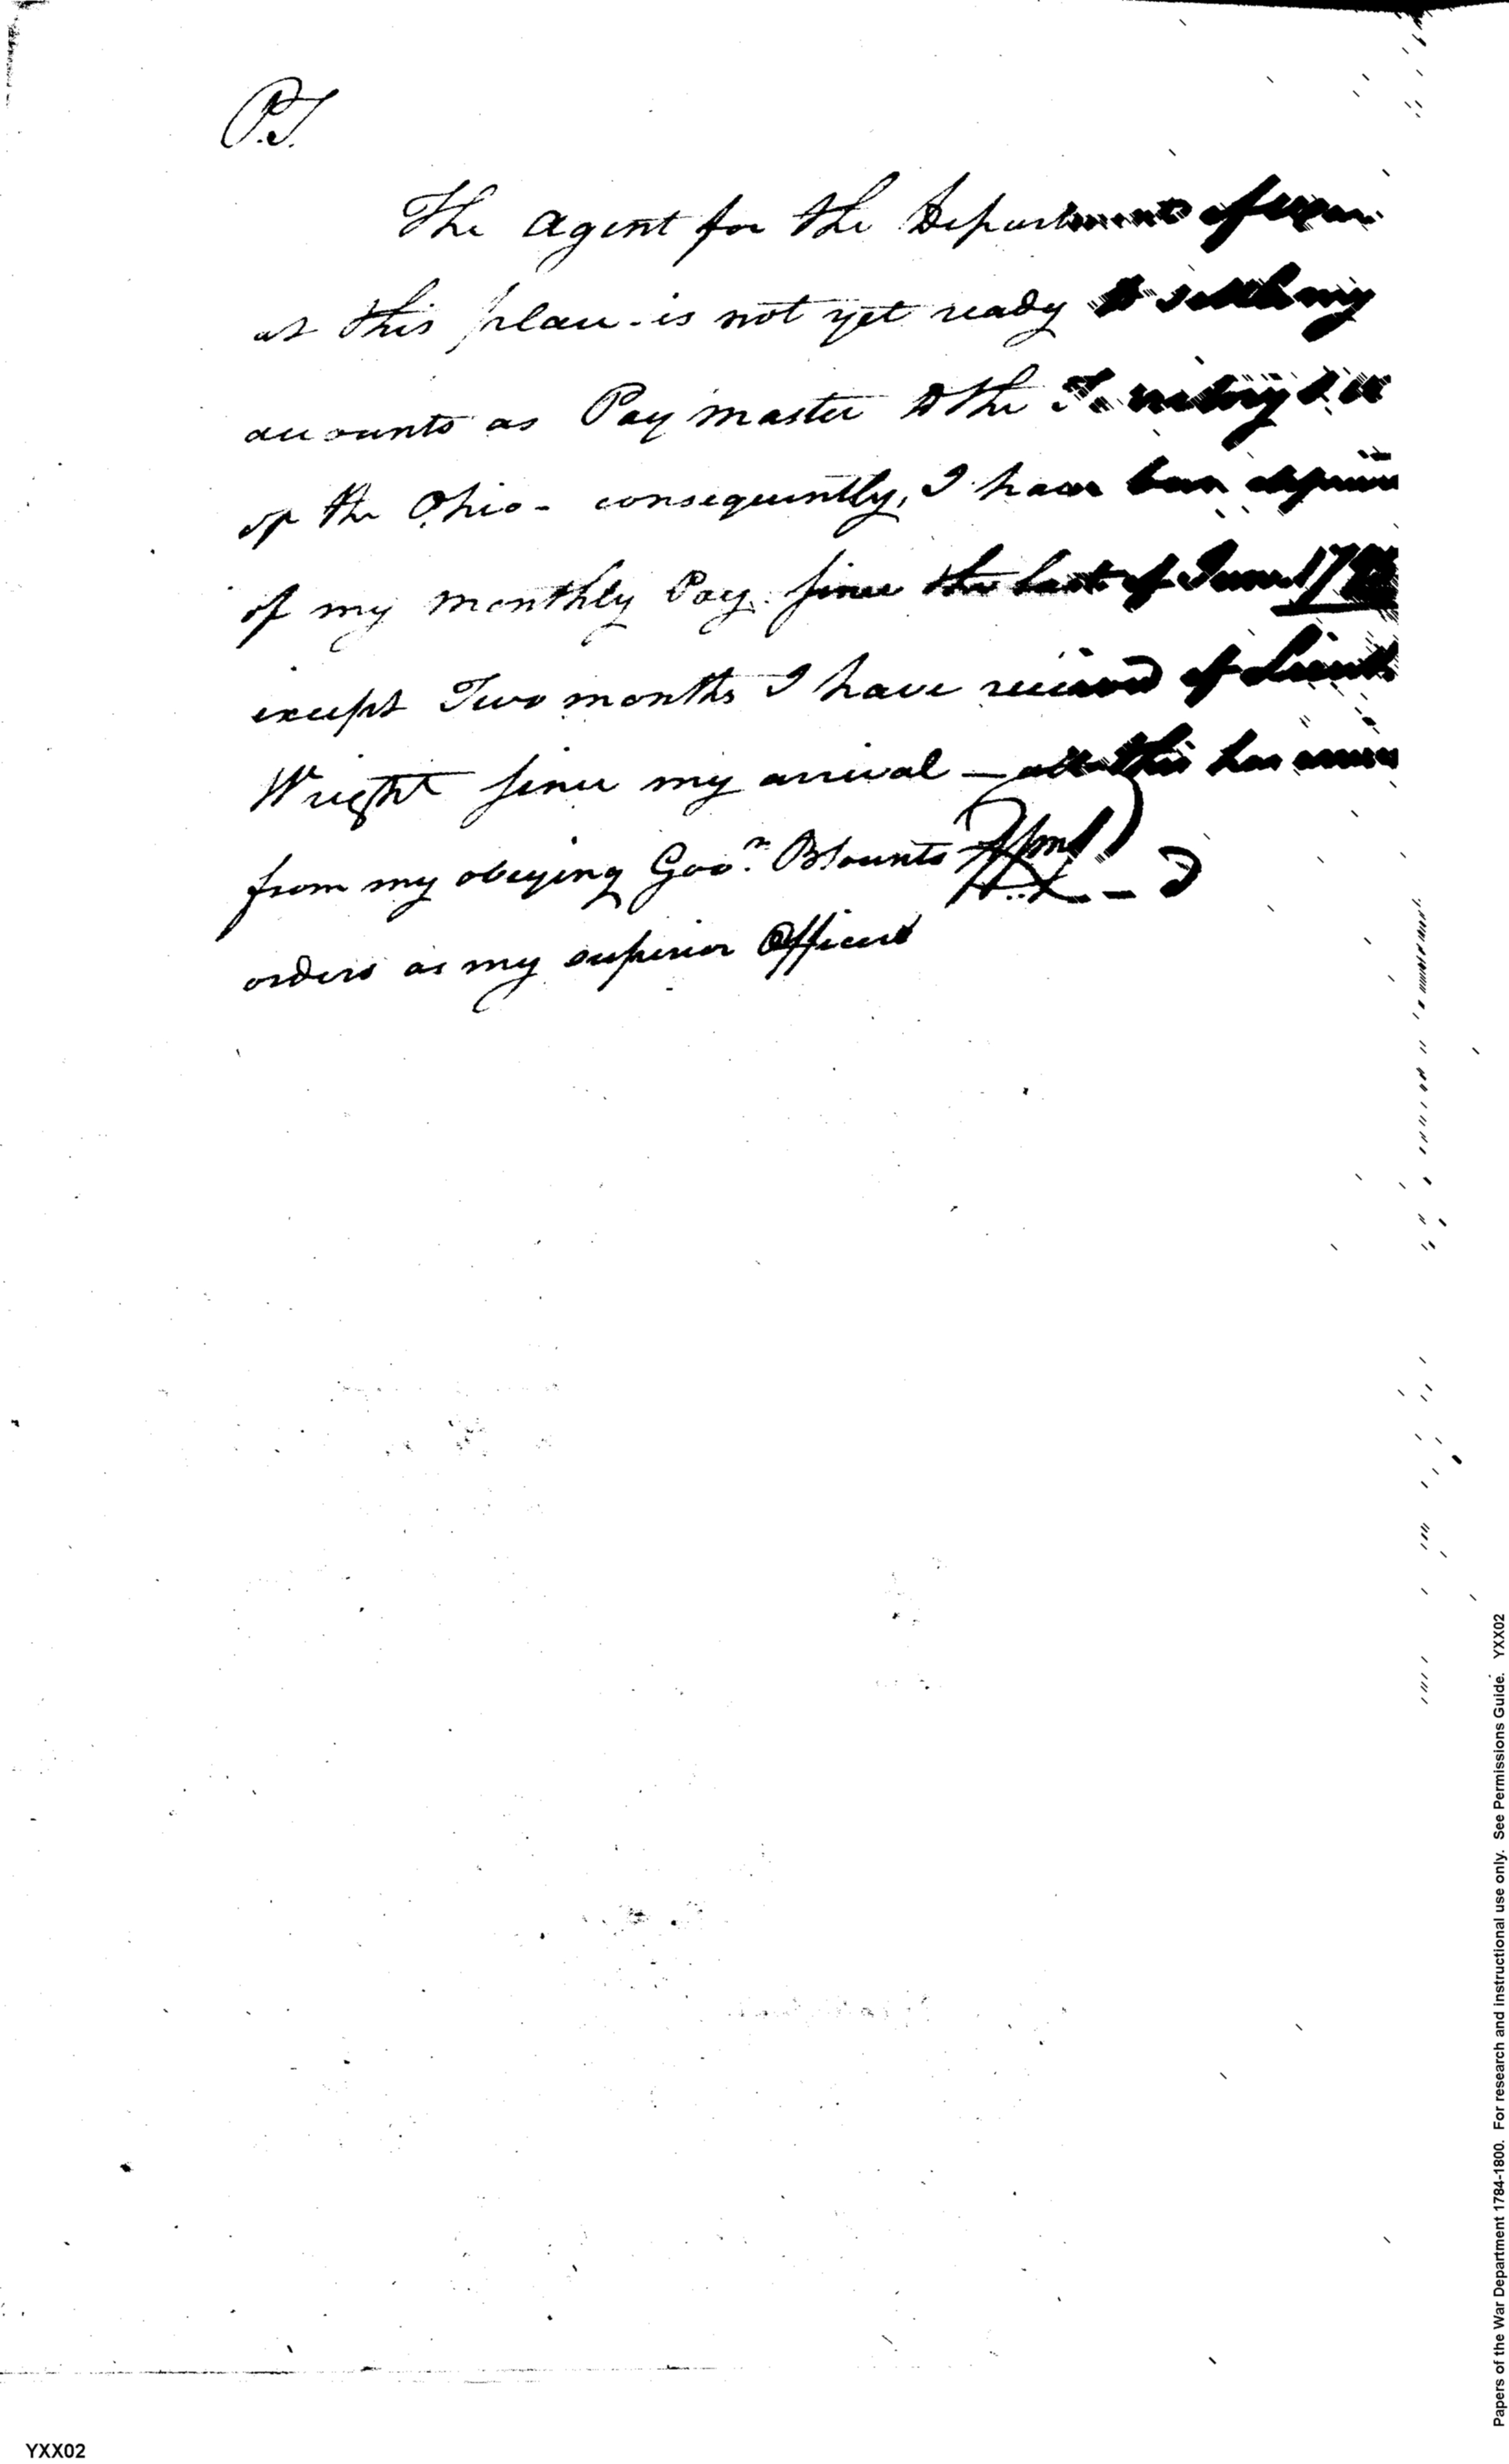 P.S.
The agent for the Department of war
at this place - is not yet ready to settle my
accounts as Pay master to the Territory
of the Ohio - consequently, I have been
of my monthly Pay since the last of June 17
except Two months I have received of Lieut
Wright since my arrival — all this has
from my obeying Govr. Blounts
orders as my superior Officer
Papers of the War Department 1784-1800. For research and instructional use only. See Permissions Guide. YXX02
YXX02